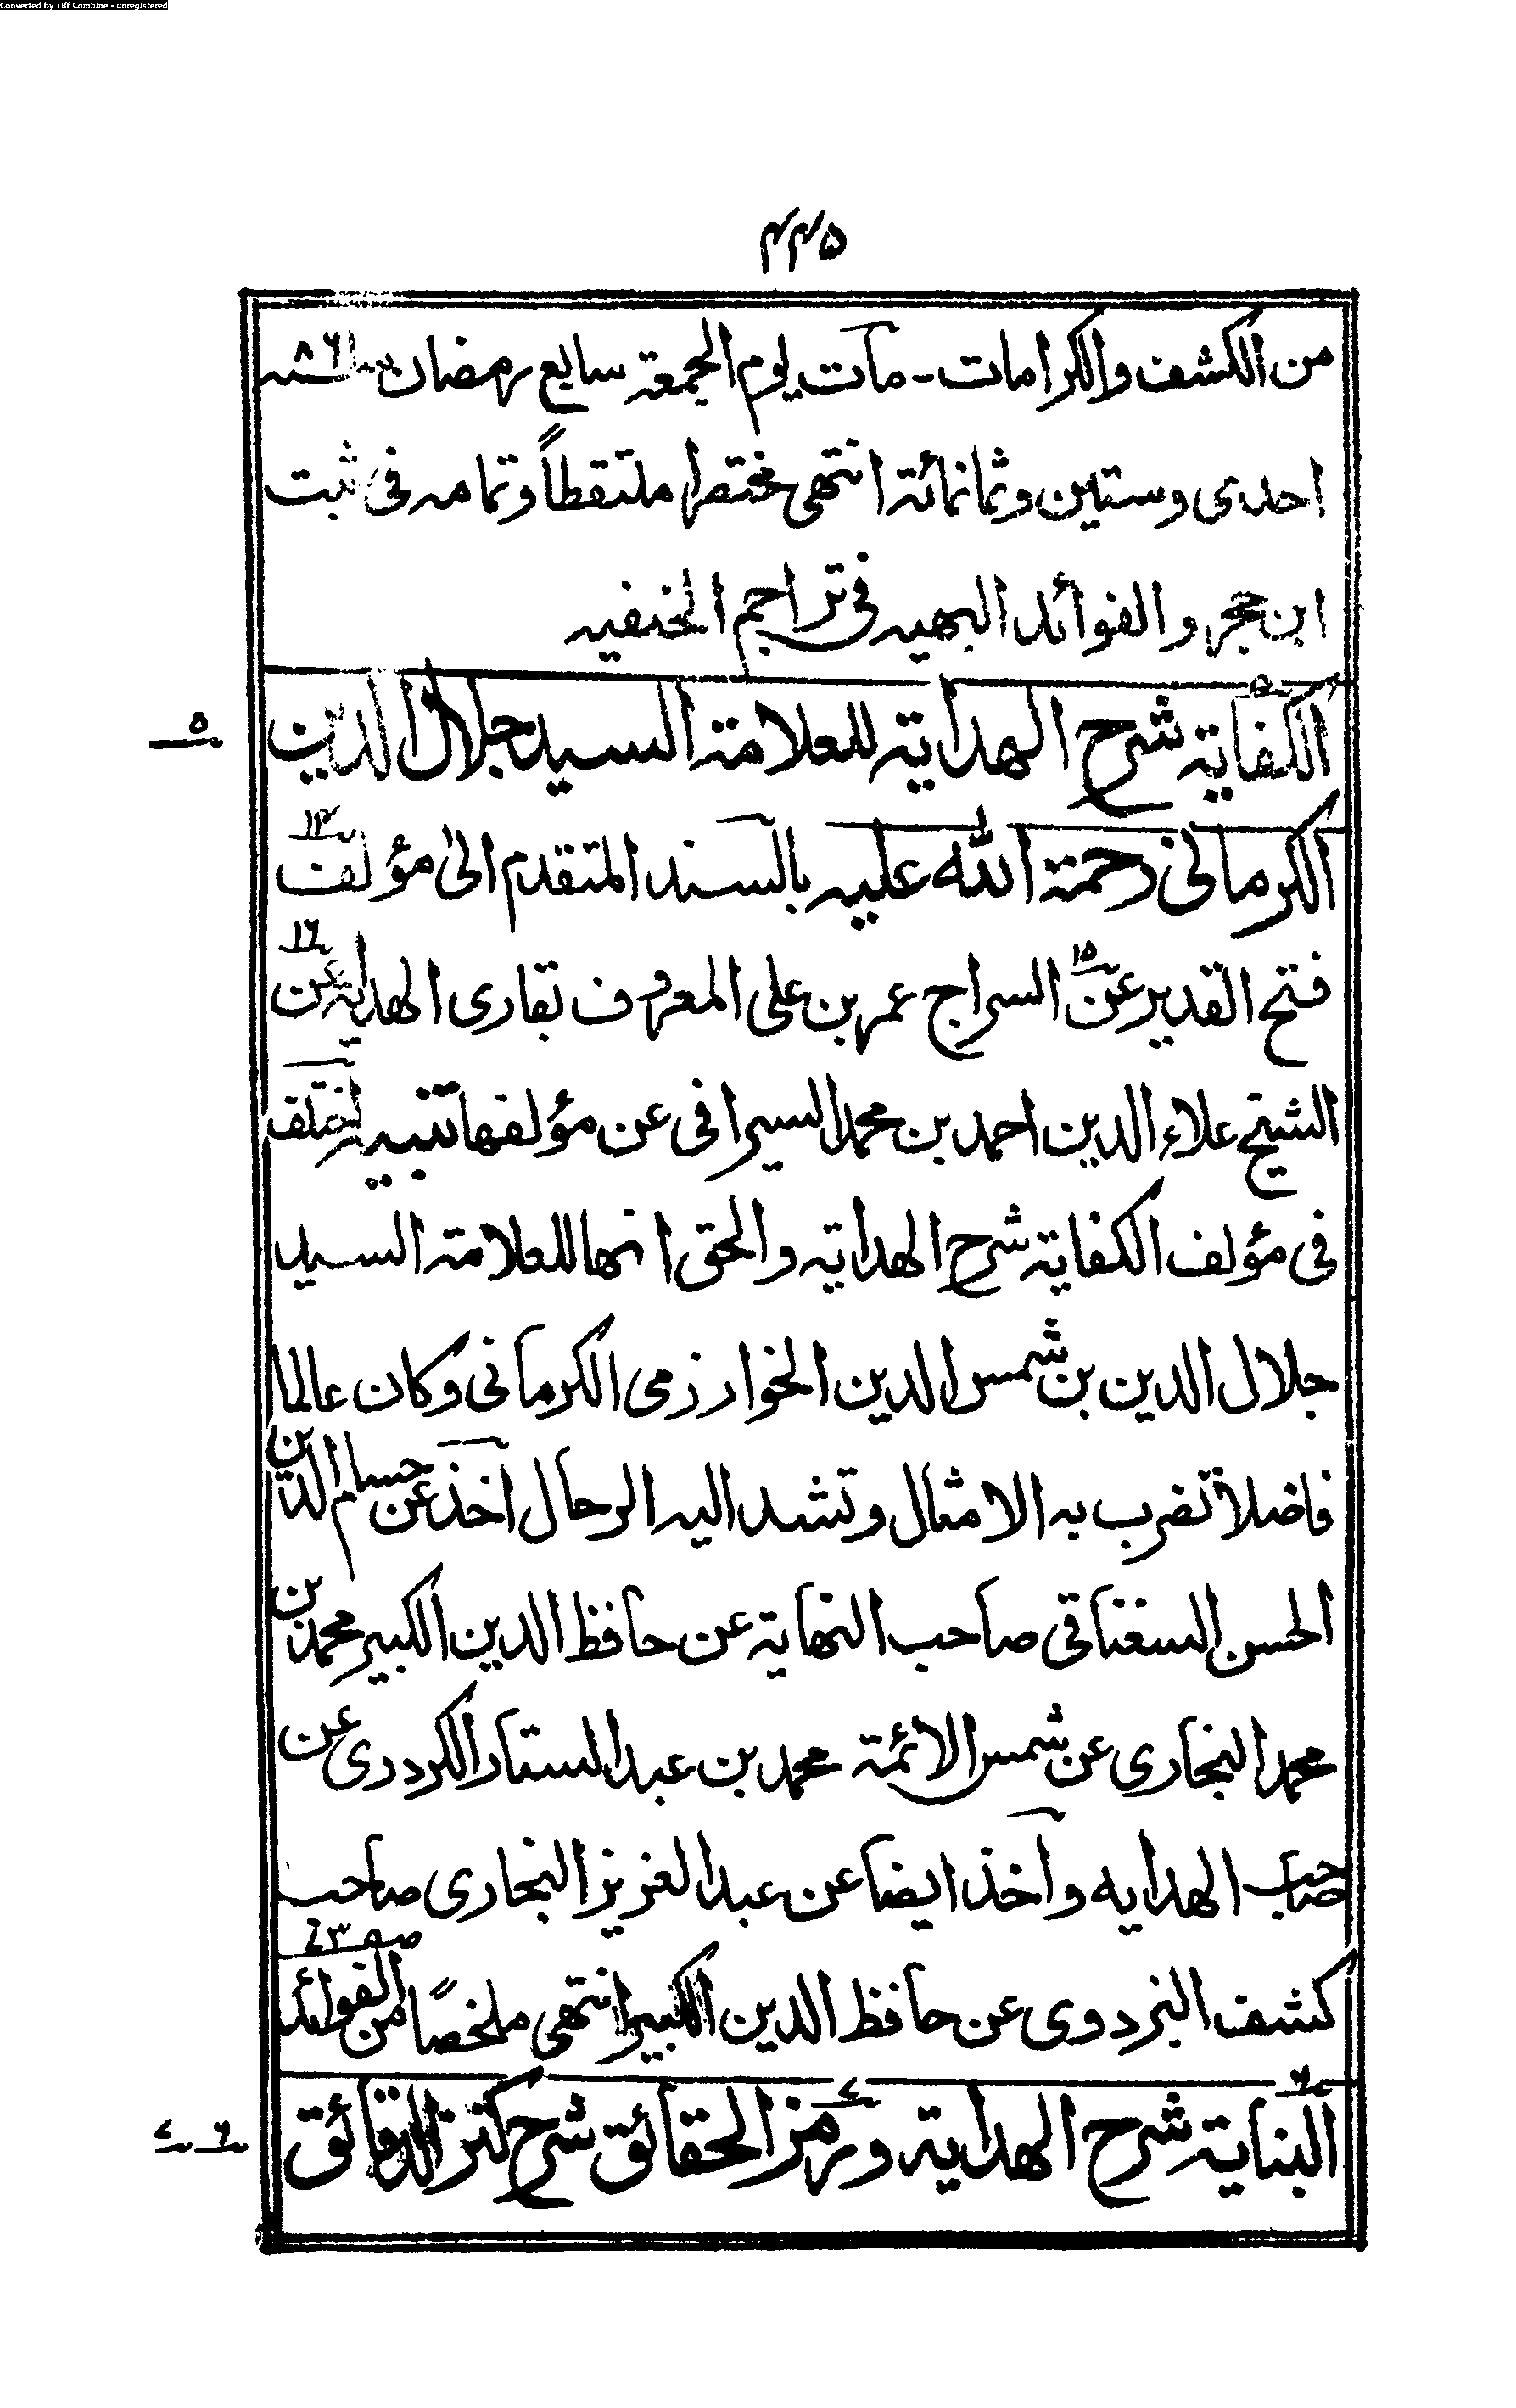 Converted by Tiff Combine - unregistered
۴۴۵
من الكشف والكرامات - مات يوم الجمعة سابع رمضان سنة ٨٦١
احدى وستين وثمانمائة انتهى مختصرا ملتقطاً وتمامه فى ثبت
ابن حجر والفوائد البهيه فى تراجم الحنفيه
الكفاية شرح الهداية للعلامة السيد جلال الدين
۵
الكرمانى رحمة الله عليه بالسند المتقدم الى مؤلف
فتح القدير عن السراج عمر بن على المعروف بقارى الهداية عن
۱۴ ۱۵ ۱۶
الشيخ علاء الدين احمد بن محمد السيرافى عن مؤلفها تنبيه اختلف
فى مؤلف الكفاية شرح الهداية والحق انها للعلامة السيد
جلال الدين بن شمس الدين الخوارزمى الكرمانى وكان عالما
فاضلا تضرب به الامثال وتشد اليه الرحال اخذ عن حسام الدين
الحسن السغناقى صاحب النهاية عن حافظ الدين الكبير محمد بن
محمد البخارى عن شمس الائمة محمد بن عبد الستار الكردرى عن
صاحب الهدايه واخذ ايضا عن عبد العزيز البخارى صاحب
كشف البزدوى عن حافظ الدين الكبير انتهى ملخصًا من الفوائد
البناية شرح الهداية ورمز الحقائق شرح كنز الدقائق